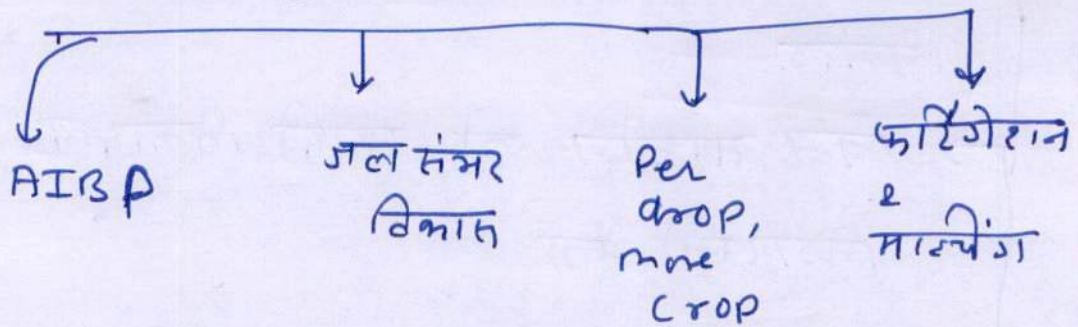 AIBP
जल संभर
विकास
Per
drop,
more
crop
फर्टिगेशन
&
मल्चिंग